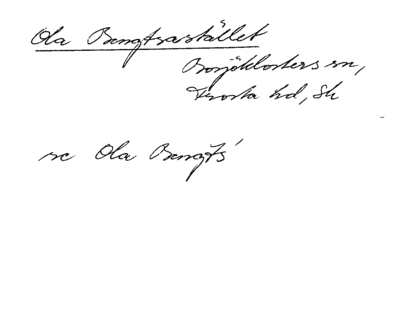 Ola Bengtsastället
Bosjöklosters sn,
Frosta hd, Sk
se Ola Bengts'